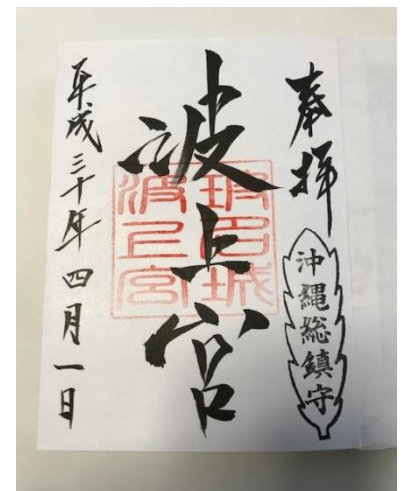 奉拝
沖縄総鎮守
波上宮
平成三十年四月一日